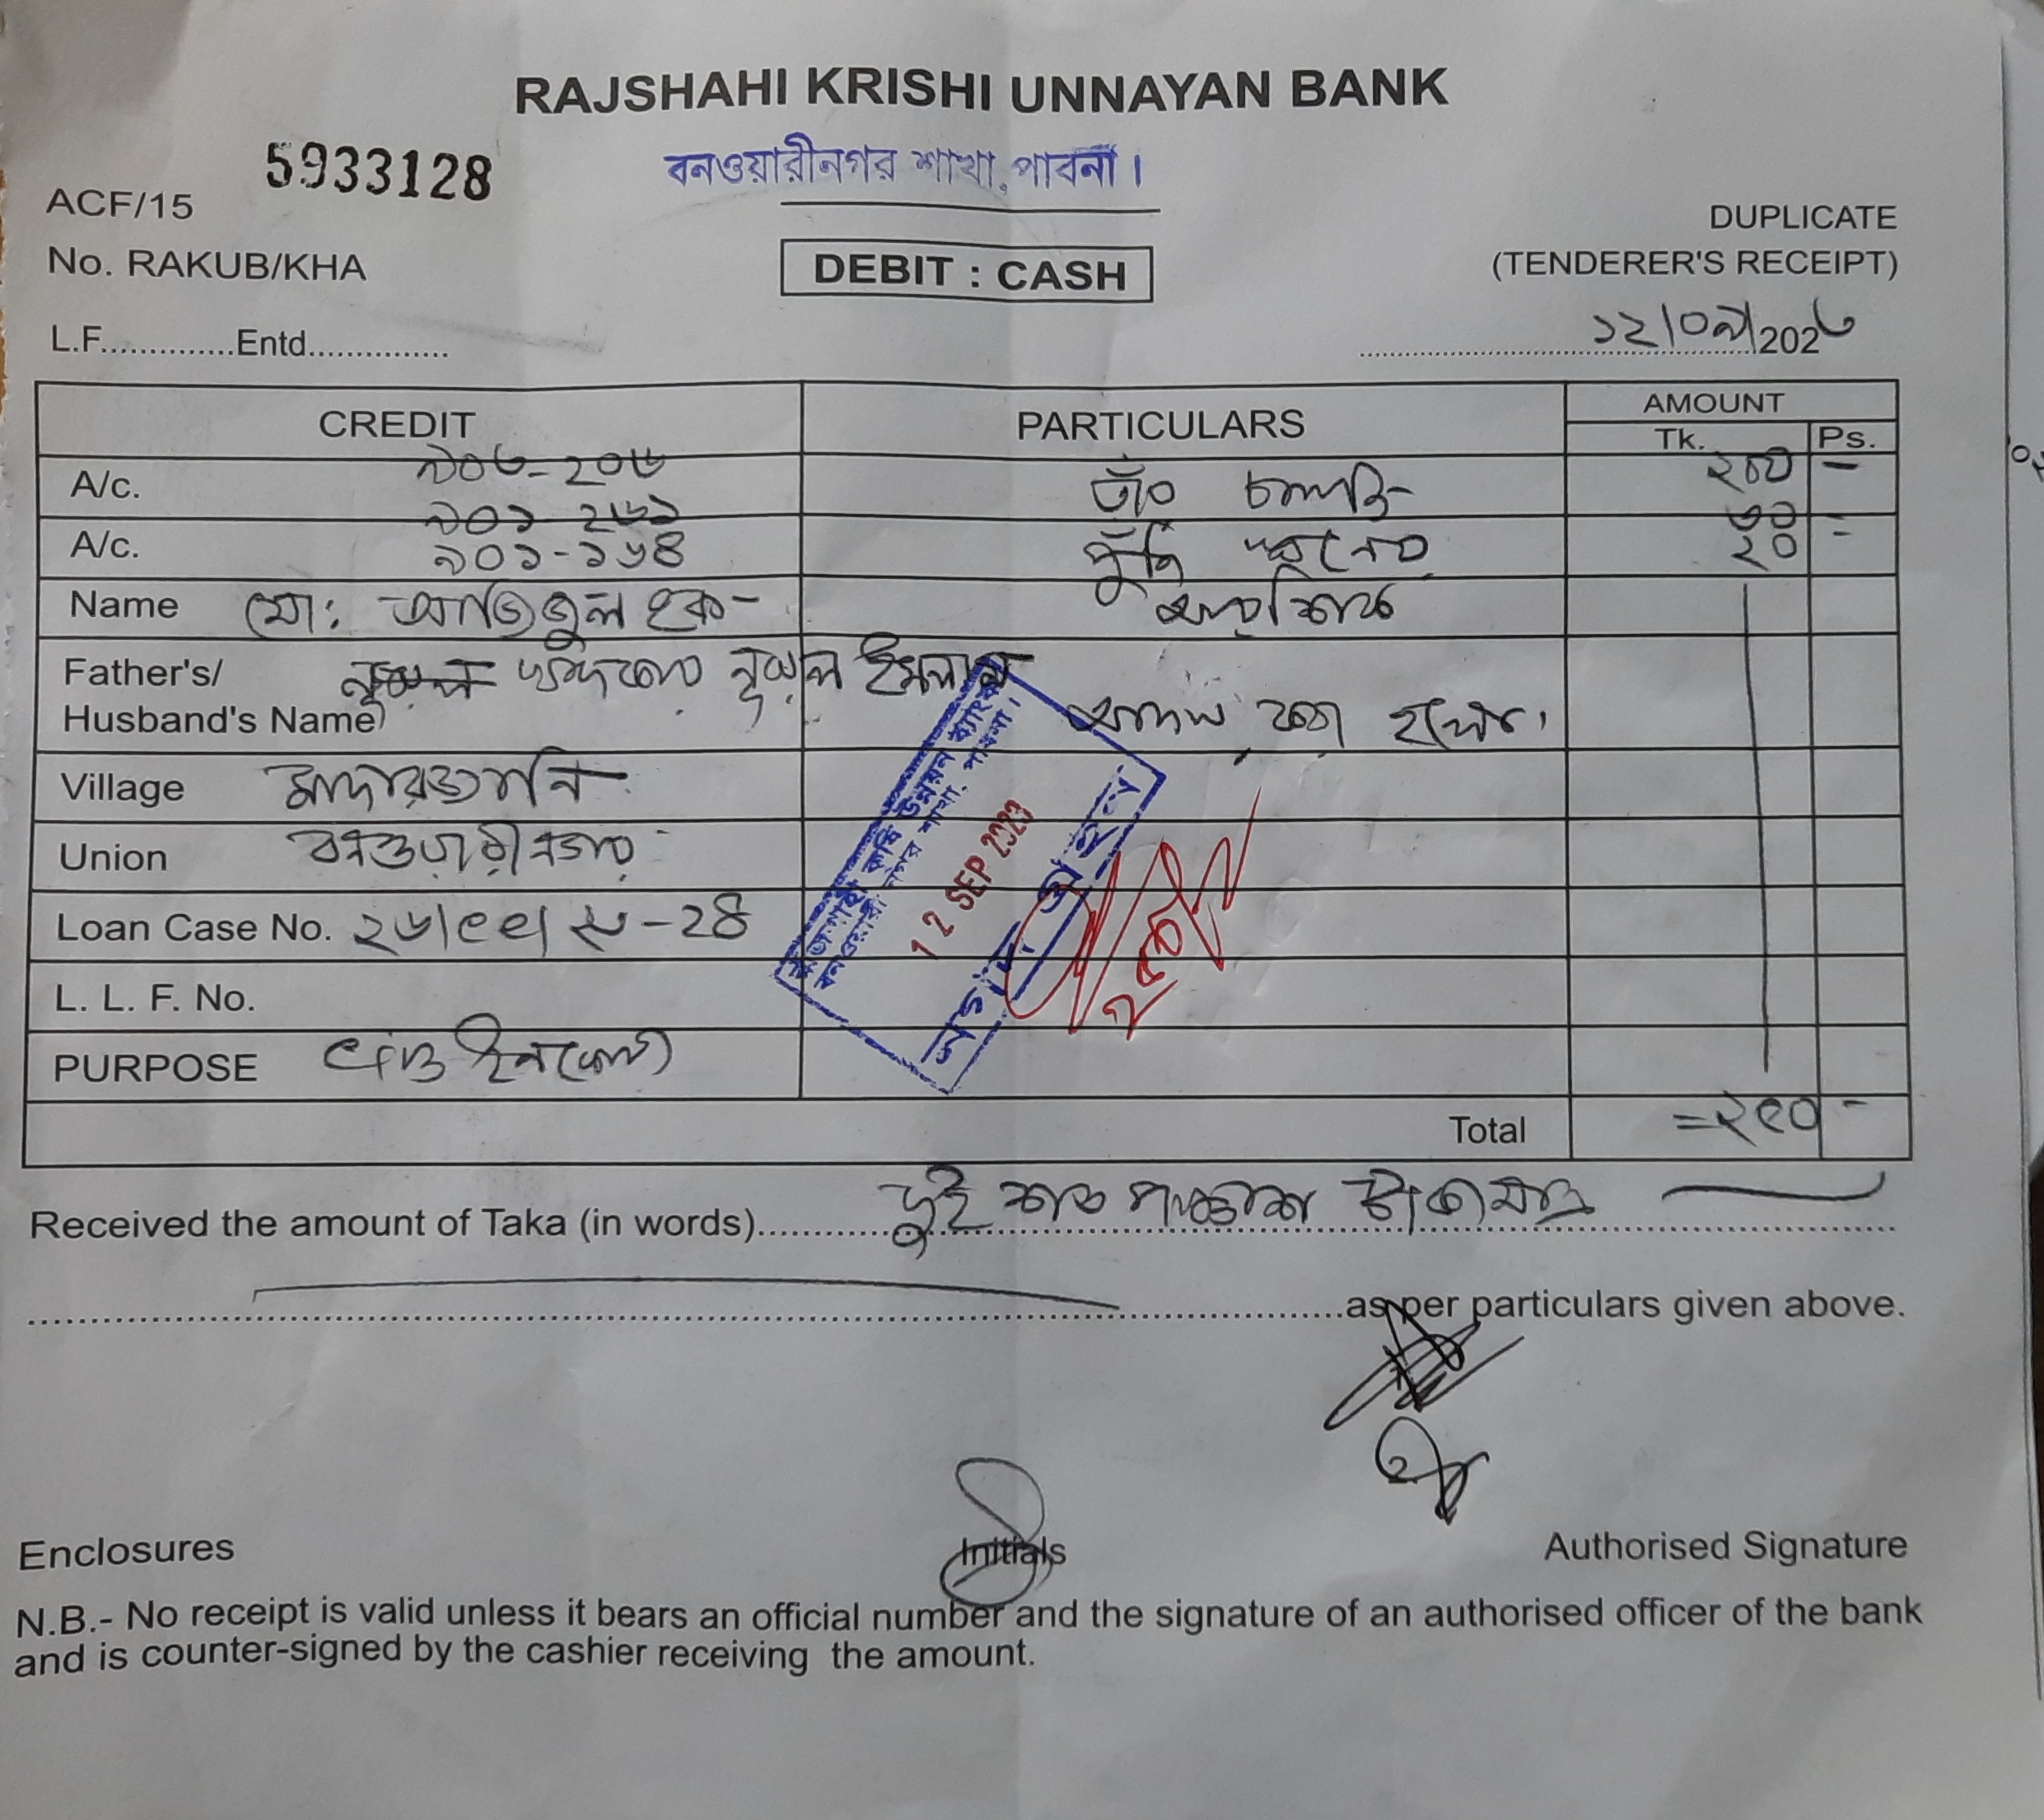 RAJSHAHI KRISHI UNNAYAN BANK
5933128
বনওয়ারীনগর শাখা, পাবনা।
ACF/15
DUPLICATE
No. RAKUB/KHA
DEBIT : CASH
(TENDERER'S RECEIPT)
L.F..............Entd...............
১২/০৯/202৩
CREDIT
PARTICULARS
AMOUNT
Tk.
Ps.
A/c. ৯০৬-২০৬
২০০ -
৯০১-২৬১
৩০
A/c. ৯০১-১৬৪
২০ -
Name মো: আজিজুল হক
Father's/
Husband's Name নূরুল ইসলাম
আদায় করা হলো।
Village
Union বনওয়ারীনগর
Loan Case No.
L. L. F. No.
PURPOSE
রাজশাহী কৃষি উন্নয়ন ব্যাংক
বনওয়ারী নগর শাখা, পাবনা।
12 SEP 2023
নগদ গ্রহণ
Total =২৫০ -
Received the amount of Taka (in words) দুই শত পঞ্চাশ টাকা মাত্র
as per particulars given above.
Enclosures
Initials
Authorised Signature
N.B.- No receipt is valid unless it bears an official number and the signature of an authorised officer of the bank
and is counter-signed by the cashier receiving the amount.